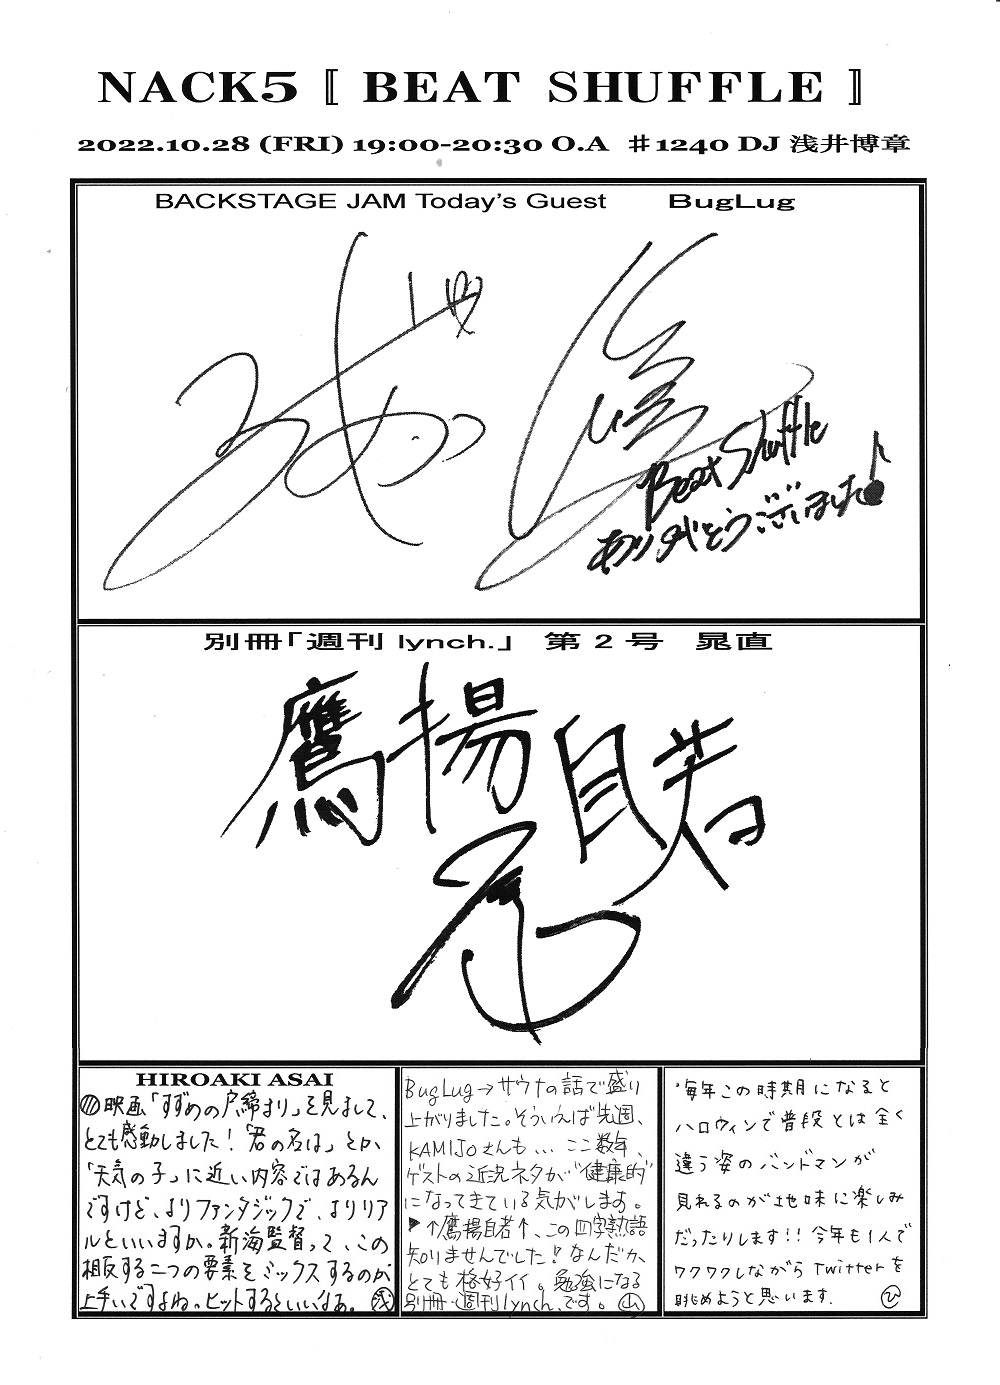 NACK5 〚 BEAT SHUFFLE 〛
2022.10.28 (FRI) 19:00-20:30 O.A ♯1240 DJ 浅井博章
BACKSTAGE JAM Today's Guest BugLug
Beat Shuffle
ありがとうございました♪
別冊「週刊 lynch.」 第 2 号 晁直
鷹揚自若
HIROAKI ASAI
映画「すずめの戸締まり」を見まして、
とても感動しました！「君の名は」とか、
「天気の子」に近い内容ではあるん
ですけど、よりファンタジックで、よりリア
ルといいますか。新海監督って、この
相反する二つの要素をミックスするのが
上手いですよね。ヒットするといいなぁ。 浅
BugLug→サウナの話で盛り
上がりました。そういえば先週、
KAMIJOさんも… ここ数年、
ゲストの近況ネタが“健康的”
になってきている気がします。
▶↑鷹揚自若↑、この四字熟語
知りませんでした！なんだか、
とても格好イイ。勉強になる
別冊・週刊lynch.です。 山
毎年この時期になると
ハロウィンで普段とは全く
違う姿のバンドマンが
見れるのが地味に楽しみ
だったりします!! 今年も1人で
ワクワクしながらTwitterを
眺めようと思います. ひ